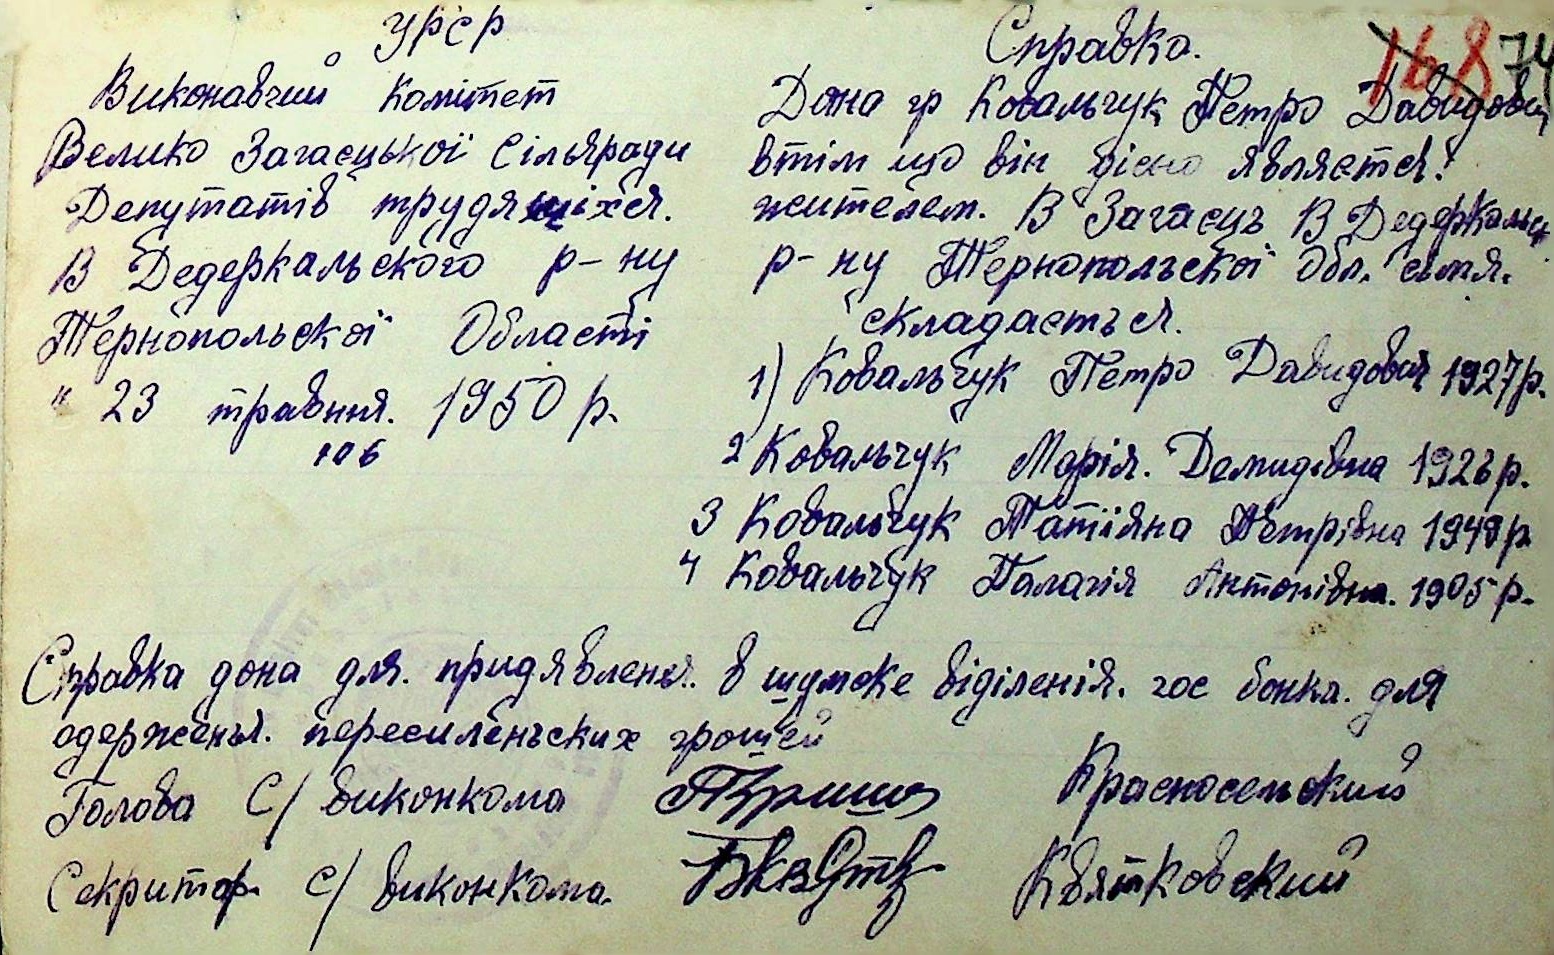 УРСР
Виконавчий Комітет
Велико Загаєцької Сільради
Депутатів трудящіхся.
В Дедеркальского р-ну
Тернопольскої Області
" 23 травння. 1950 р.
106
168 74
Справка.
Дона гр Ковальчук Петро Давидович
втім що він дісно являєтся.
жителем. В Загаєць В Дедеркальск
р-ну Тернопольскої Обл. сімя.
складається.
1) Ковальчук Петро Давидович 1927р.
2 Ковальчук Марія. Демидівна 1926р.
3 Ковальчук Татіяна Петрівна 1949р
4 Ковальчук Палагія Антонівна. 1905р.
Справка дона для. придявленя. в шумске віділенія. гос бонка. для
одерженья. пересиленьских грошей
Голова С/виконкома Красносельский
Секритар С/виконкома. Квятковский